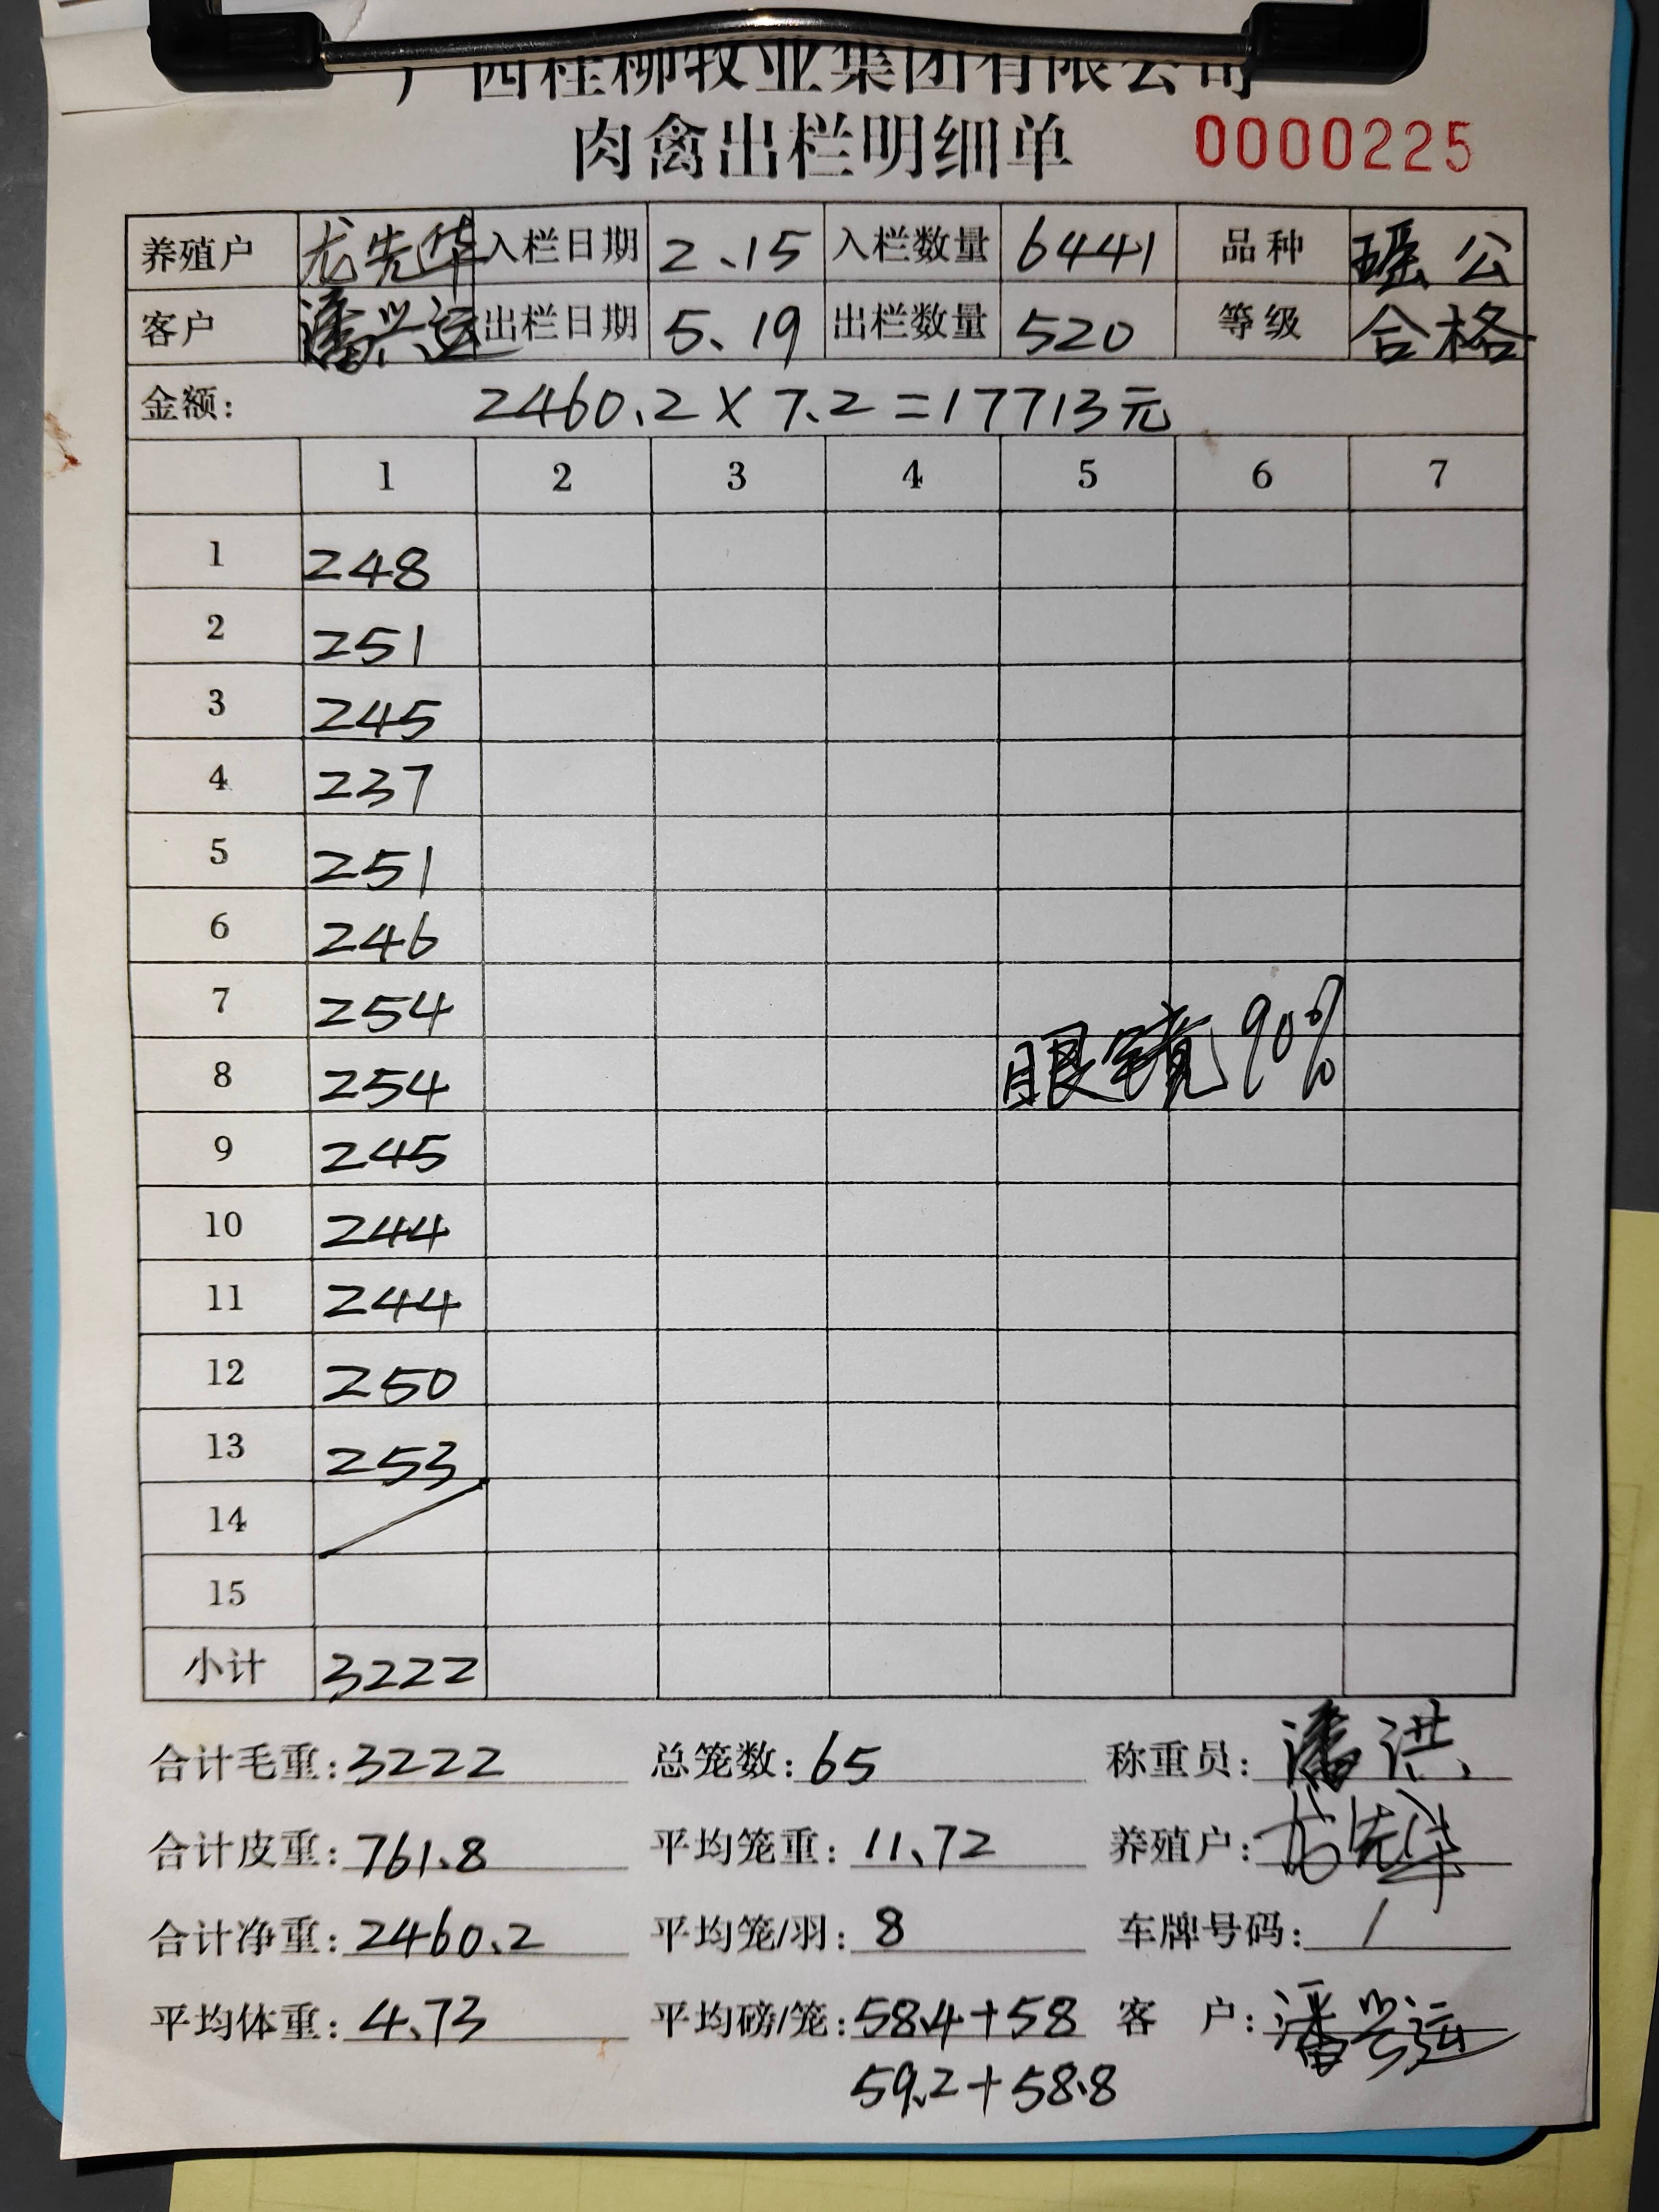 广西桂柳牧业集团有限公司
肉禽出栏明细单 0000225
养殖户 龙先华 入栏日期 2.15 入栏数量 6441 品种 瑶公
客户 潘兴运 出栏日期 5.19 出栏数量 520 等级 合格
金额: 2460.2×7.2=17713元
1 2 3 4 5 6 7
1 248
2 251
3 245
4 237
5 251
6 246
7 254
8 254 眼镜90%
9 245
10 244
11 244
12 250
13 253
14
15
小计 3222
合计毛重:3222 总笼数:65 称重员:潘洪
合计皮重:761.8 平均笼重:11.72 养殖户:龙先华
合计净重:2460.2 平均笼/羽:8 车牌号码:/
平均体重:4.73 平均磅/笼:58.4+58 客 户:潘兴运
59.2+58.8